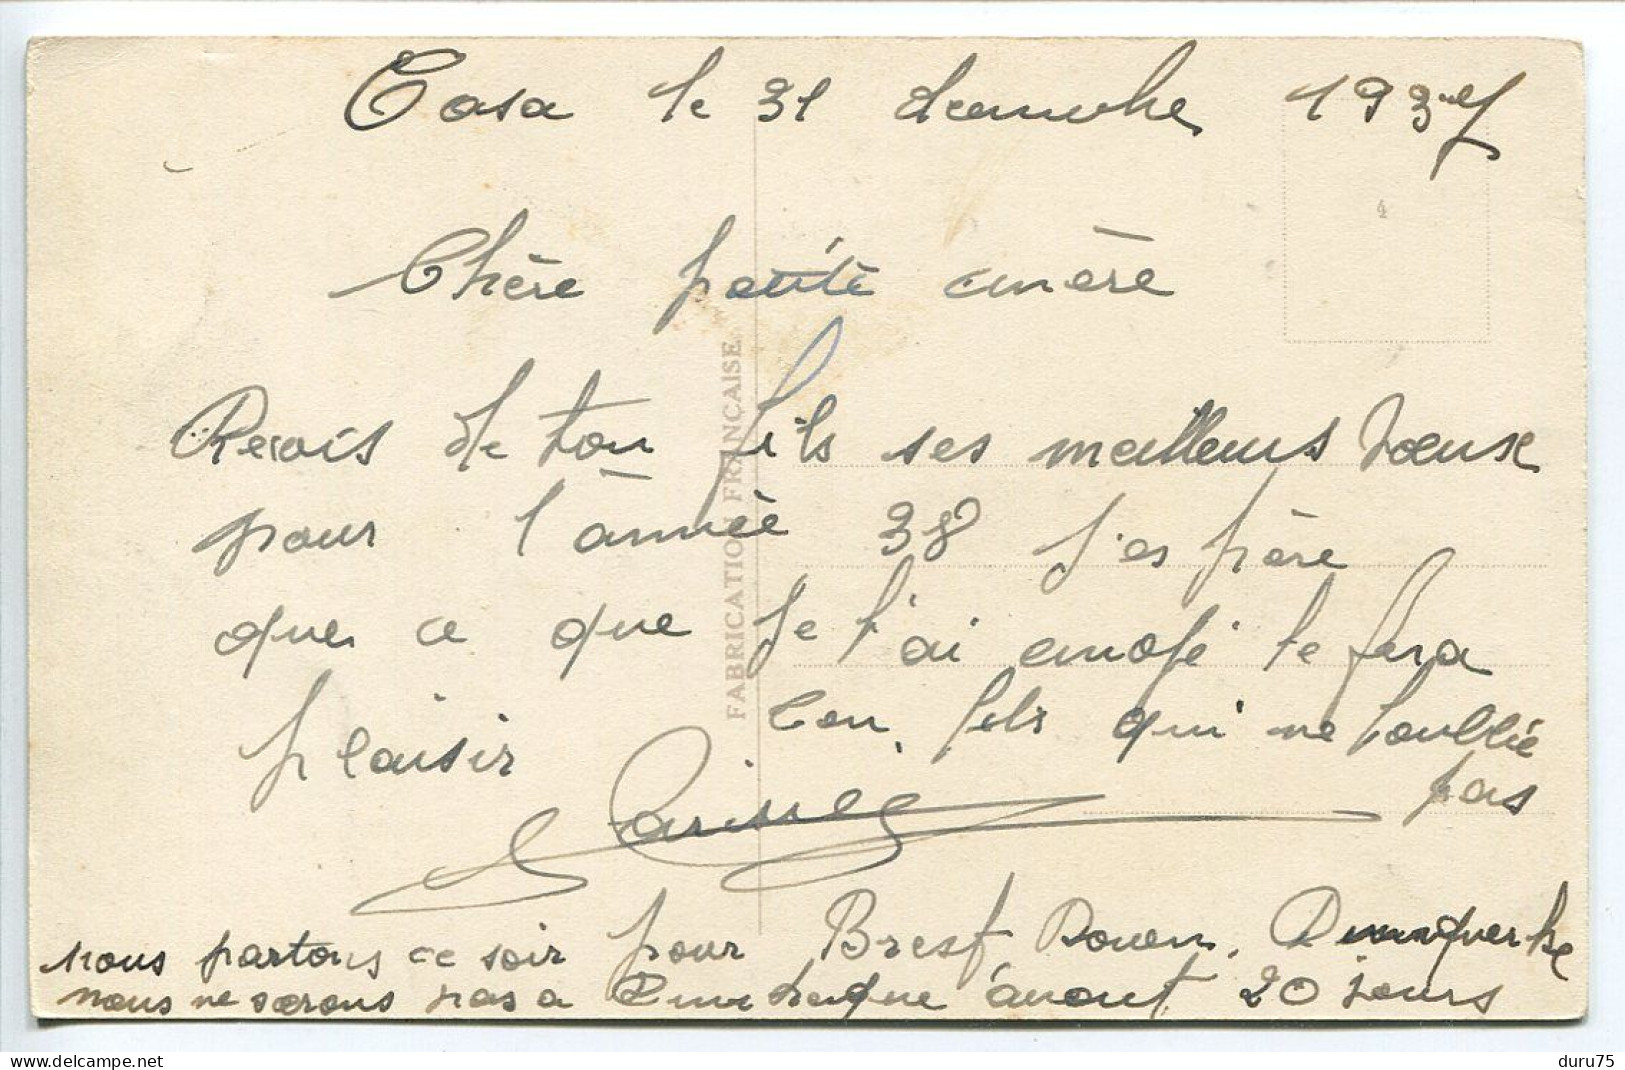 Casa le 31 decembre 1937
Chère petite mère
Recois de ton fils ses meilleurs voeux
pour l'année 38 j'espère
que ce que je t'ai envoyé te fera
plaisir ton fils qui ne t'oublie
pas
nous partons ce soir pour Brest Rouen. Dunquerke
nous ne serons pas a Dunkerque avant 20 jours
FABRICATION FRANÇAISE
www.delcampe.net
duru75